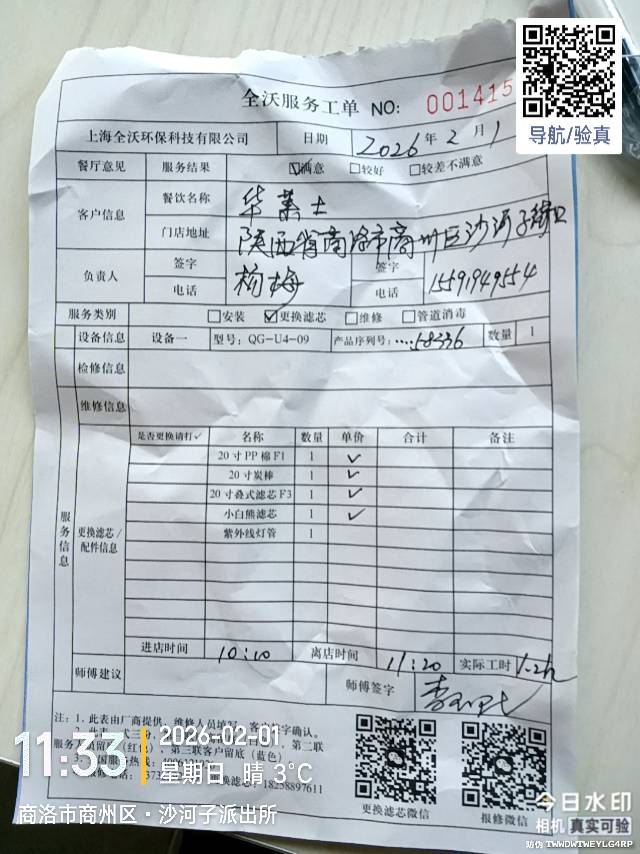 全沃服务工单 NO: 001415
导航/验真
上海全沃环保科技有限公司 日期 2026年2月1
餐厅意见 服务结果 ☑满意 □较好 □较差不满意
客户信息 餐饮名称 华莱士
门店地址 陕西省商洛市商州区沙河子街口
负责人 签字 杨梅 签字
电话 电话 15591949554
服务类别 □安装 ☑更换滤芯 □维修 □管道消毒
设备信息 设备一 型号: QG-U4-09 产品序列号: ....58336 数量 1
检修信息
维修信息
服务信息
更换滤芯/配件信息
是否更换请打✓ 名称 数量 单价 合计 备注
20寸PP棉F1 1 ✓
20寸炭棒 1 ✓
20寸叠式滤芯F3 1 ✓
小白熊滤芯 1 ✓
紫外线灯管 1
进店时间 10:10 离店时间 11:20 实际工时 1.2h
师傅建议 师傅签字
注: 1、此表由厂商提供、维修人员填写、客户签字确认。
第三联客户留底（蓝色）
18258897611
更换滤芯微信 报修微信
11:33 2026-02-01
星期日 晴 3℃
商洛市商州区·沙河子派出所
今日水印
相机 真实可验
防伪 TWWDWTWEYLG4RP